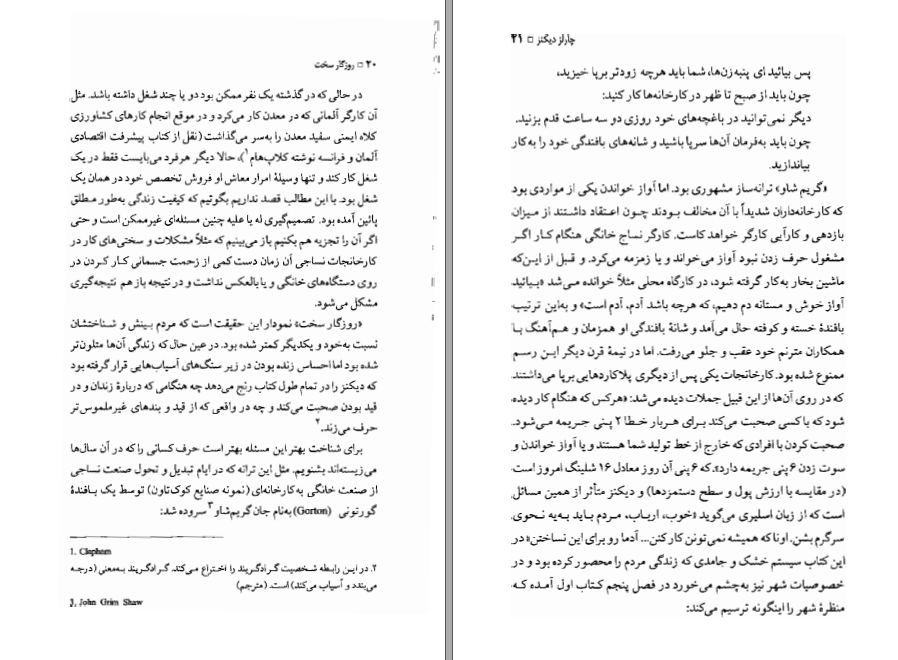 ۲۰ □ روزگار سخت
در حالی که در گذشته یک نفر ممکن بود دو یا چند شغل داشته باشد. مثل
آن کارگر آلمانی که در معدن کار می‌کرد و در موقع انجام کارهای کشاورزی
کلاه ایمنی سفید معدن را به‌سر می‌گذاشت (نقل از کتاب پیشرفت اقتصادی
آلمان و فرانسه نوشته کلاپ‌هام۱)، حالا دیگر هرفرد می‌بایست فقط در یک
شغل کار کند و تنها وسیلهٔ امرار معاش او فروش تخصص خود در همان یک
شغل بود. با این مطالب قصد نداریم بگوئیم که کیفیت زندگی به‌طور مطلق
پائین آمده بود. تصمیم‌گیری له یا علیه چنین مسئله‌ای غیرممکن است و حتی
اگر آن را تجزیه هم بکنیم باز می‌بینیم که مثلاً مشکلات و سختی‌های کار در
کارخانجات نساجی آن زمان دست کمی از زحمت جسمانی کار کردن در
روی دستگاه‌های خانگی و یا بالعکس نداشت و در نتیجه باز هم نتیجه‌گیری
مشکل می‌شود.
«روزگار سخت» نمودار این حقیقت است که مردم بینش و شناختشان
نسبت به‌خود و یکدیگر کمتر شده بود. در عین حال که زندگی آن‌ها متلون‌تر
شده بود اما احساس زنده بودن در زیر سنگ‌های آسیاب‌هایی قرار گرفته بود
که دیکنز را در تمام طول کتاب رنج می‌دهد چه هنگامی که دربارهٔ زندان و در
قید بودن صحبت می‌کند و چه در واقعی که از قید و بندهای غیرملموس‌تر
حرف می‌زند.۲
برای شناخت بهتر این مسئله بهتر است حرف کسانی را که در آن سال‌ها
می‌زیسته‌اند بشنویم. مثل این ترانه که در ایام تبدیل و تحول صنعت نساجی
از صنعت خانگی به‌کارخانه‌ای (نمونه صنایع کوک‌تاون) توسط یک بافندهٔ
گورتونی (Gorton) به‌نام جان گریم‌شاو۳ سروده شد:
1. Clapham
۲. در این رابطه شخصیت گرادگریند را اختراع می‌کند. گرادگریند به‌معنی (درجه
می‌بندد و آسیاب می‌کند) است. (مترجم)
3. John Grim Shaw
چارلز دیکنز □ ۲۱
پس بیائید ای پنبه‌زن‌ها، شما باید هرچه زودتر برپا خیزید،
چون باید از صبح تا ظهر در کارخانه‌ها کار کنید:
دیگر نمی‌توانید در باغچه‌های خود روزی دو سه ساعت قدم بزنید.
چون باید به‌فرمان آن‌ها سرپا باشید و شانه‌های بافندگی خود را به‌کار
بیاندازید.
«گریم شاو» ترانه‌ساز مشهوری بود. اما آواز خواندن یکی از مواردی بود
که کارخانه‌داران شدیداً با آن مخالف بودند چون اعتقاد داشتند از میزان
بازدهی و کارآیی کارگر خواهد کاست. کارگر نساج خانگی هنگام کار اگر
مشغول حرف زدن نبود آواز می‌خواند و یا زمزمه می‌کرد. و قبل از این‌که
ماشین بخار به‌کار گرفته شود، در کارگاه محلی مثلاً خوانده می‌شد «بیائید
آواز خوش و مستانه دم دهیم، که هرچه باشد آدم، آدم است» و به‌این ترتیب
بافندهٔ خسته و کوفته حال می‌آمد و شانهٔ بافندگی او همزمان و هم‌آهنگ با
همکاران مترنم خود عقب و جلو می‌رفت. اما در نیمهٔ قرن دیگر این رسم
ممنوع شده بود. کارخانجات یکی پس از دیگری پلاکاردهایی برپا می‌داشتند
که در روی آن‌ها از این قبیل جملات دیده می‌شد: «هرکس که هنگام کار دیده
شود که با کسی صحبت می‌کند برای هربار خطا ۲ پنی جریمه می‌شود.
صحبت کردن با افرادی که خارج از خط تولید شما هستند و یا آواز خواندن و
سوت زدن ۶ پنی جریمه دارد». که ۶ پنی آن روز معادل ۱۶ شلینگ امروز است
(در مقایسه با ارزش پول و سطح دستمزدها) و دیکنز متأثر از همین مسائل
است که از زبان اسلیری می‌گوید «خوب، ارباب، مردم باید به‌یه نحوی
سرگرم بشن. اونا که همیشه نمی‌تونن کار کنن... آدما رو برای این نساختن» در
این کتاب سیستم خشک و جامدی که زندگی مردم را محصور کرده بود و در
خصوصیات شهر نیز به‌چشم می‌خورد در فصل پنجم کتاب اول آمده که
منظرهٔ شهر را اینگونه ترسیم می‌کند: